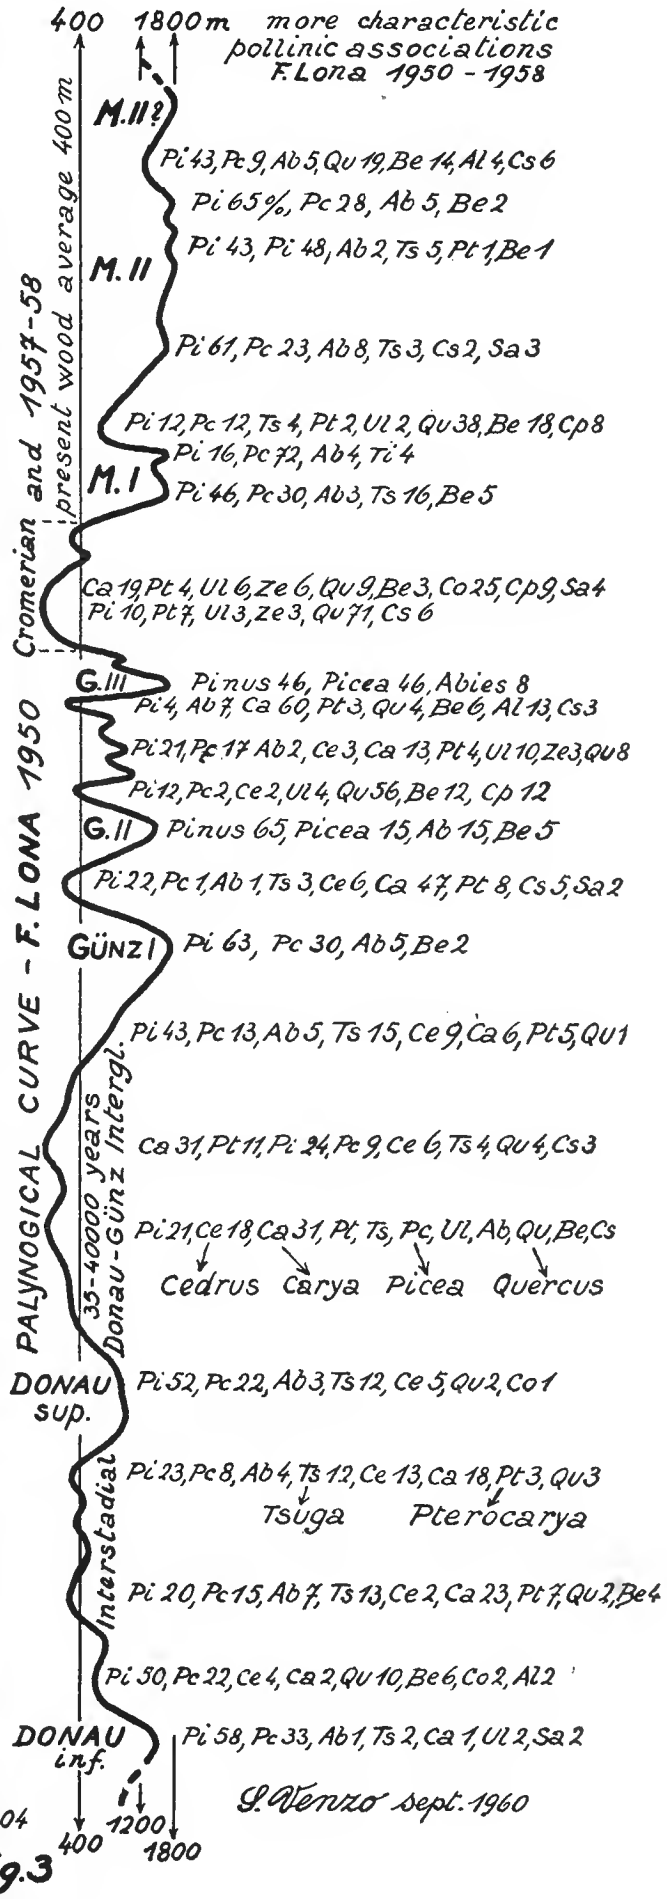 400 1800m more characteristic
pollinic associations
F. Lona 1950 - 1958
M.II?
Pi 43, Pc 9, Ab 5, Qu 19, Be 14, Al 4, Cs 6
Pi 65%, Pc 28, Ab 5, Be 2
Pi 43, Pi 48, Ab 2, Ts 5, Pt 1, Be 1
M.II
Pi 61, Pc 23, Ab 8, Ts 3, Cs 2, Sa 3
Pi 12, Pc 12, Ts 4, Pt 2, Ul 2, Qu 38, Be 18, Cp 8
Pi 16, Pc 72, Ab 4, Ti 4
M.I
Pi 46, Pc 30, Ab 3, Ts 16, Be 5
Cromerian and 1957-58
present wood average 400 m
Ca 19, Pt 4, Ul 6, Ze 6, Qu 9, Be 3, Co 25, Cp 9, Sa 4
Pi 10, Pt 7, Ul 3, Ze 3, Qu 71, Cs 6
G.III Pinus 46, Picea 46, Abies 8
Pi 4, Ab 7, Ca 60, Pt 3, Qu 4, Be 6, Al 13, Cs 3
Pi 21, Pc 17 Ab 2, Ce 3, Ca 13, Pt 4, Ul 10, Ze 3, Qu 8
Pi 12, Pc 2, Ce 2, Ul 4, Qu 56, Be 12, Cp 12
G.II Pinus 65, Picea 15, Ab 15, Be 5
Pi 22, Pc 1, Ab 1, Ts 3, Ce 6, Ca 47, Pt 8, Cs 5, Sa 2
GÜNZ I Pi 63, Pc 30, Ab 5, Be 2
PALYNOGICAL CURVE - F. LONA 1950
Pi 43, Pc 13, Ab 5, Ts 15, Ce 9, Ca 6, Pt 5, Qu 1
35-40000 years
Donau-Günz Intergl.
Ca 31, Pt 11, Pi 24, Pc 9, Ce 6, Ts 4, Qu 4, Cs 3
Pi 21, Ce 18, Ca 31, Pt, Ts, Pc, Ul, Ab, Qu, Be, Cs
Cedrus Carya Picea Quercus
DONAU
sup.
Pi 52, Pc 22, Ab 3, Ts 12, Ce 5, Qu 2, Co 1
Interstadial
Pi 23, Pc 8, Ab 4, Ts 12, Ce 13, Ca 18, Pt 3, Qu 3
Tsuga Pterocarya
Pi 20, Pc 15, Ab 7, Ts 13, Ce 2, Ca 23, Pt 7, Qu 2, Be 4
Pi 50, Pc 22, Ce 4, Ca 2, Qu 10, Be 6, Co 2, Al 2
DONAU
inf.
Pi 58, Pc 33, Ab 1, Ts 2, Ca 1, Ul 2, Sa 2
S. Venzo sept. 1960
04
1200
400 1800
g.3